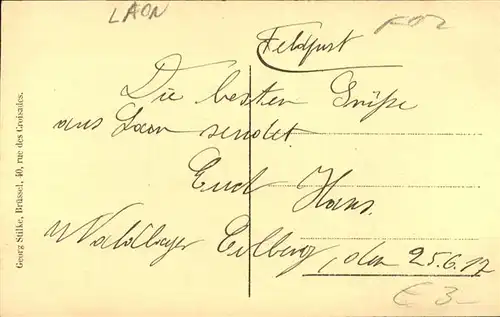 LAON
Feldpost
Die besten Grüße
aus Laon sendet
Euch Hans.
Waldlager Eilberg, den 25.6.17
€ 3-
Georg Stilke, Brüssel, 40, rue des Croisades.